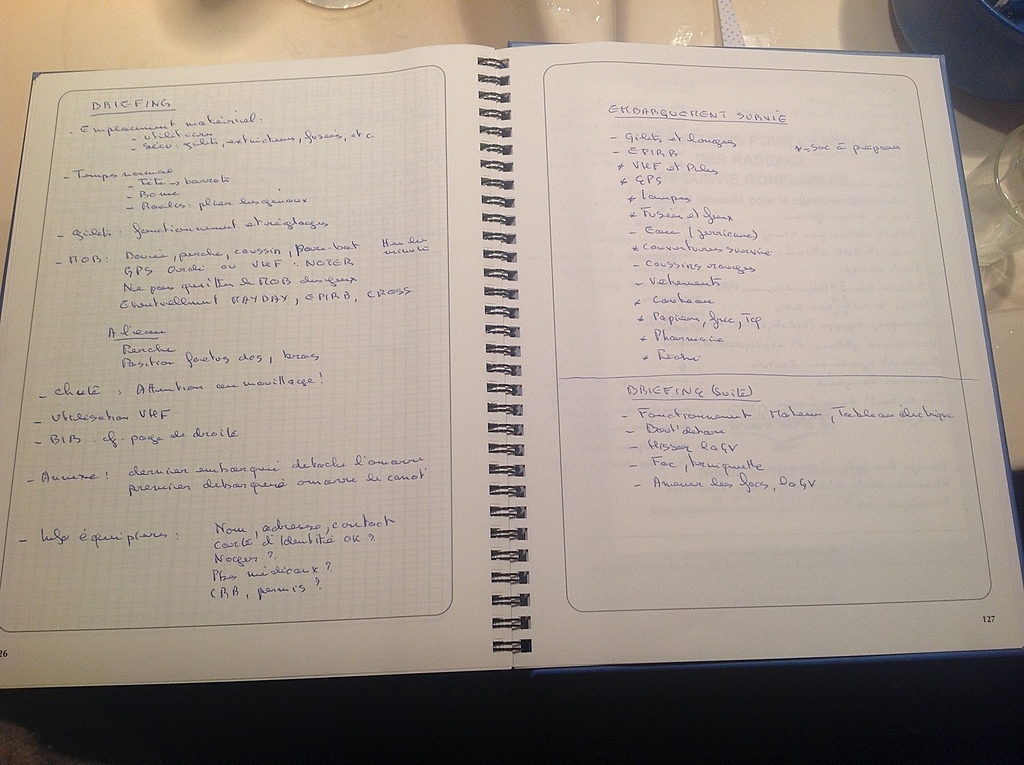 BRIEFING
- Emplacement matériel :
- utilitaire
- sécu : gilets, extincteurs, fusées, etc.
- Temps normal
- Tête → bar
- Bome
- : plier les genoux
- gilets : fonctionnement et réglages
- MOB : Bouée, perche, coussin, pare-bat
GPS ou VHF : NOTER
Ne pas quitter le MOB des yeux
Eventuellement MAYDAY, EPIRB, CROSS
A l'eau
Perche
Position foetus dos, bras
- chute : Attention au mouillage !
- Utilisation VHF
- BIB : cf. page de droite
- Annexe : dernier embarqué détache l'amarre
premier débarqué amarre le canot
- Info équipiers :
Nom, adresse, contact
Carte d'Identité OK ?
Nages ?
Pbs médicaux ?
CRR, permis ?
26
EMBARQUEMENT SURVIE
- Gilets et longes
* = Sac à préparer
- EPIRB
* VHF et Piles
* GPS
* Lampes
* Fusées et feux
- Eau (jerricane)
* Couvertures survie
- Coussins rouges
- Vêtements
* Couteau
* Papiers, fric, Tel
* Pharmacie
*
BRIEFING (suite)
- Fonctionnement Moteur, Tableau électrique
- Bout'dehors
- Hisser la GV
- Foc, tourniquette
- Amener les focs, la GV
127